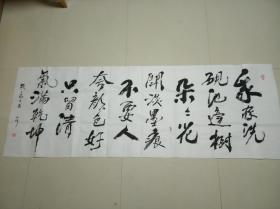 我家洗
硯池邊樹
朵々花
開淡墨痕
不要人
夸顏色好
只留清
氣滿乾坤